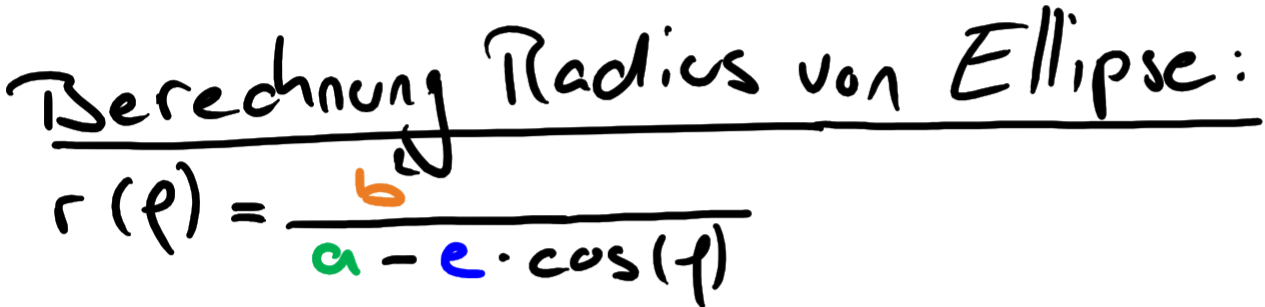 Berechnung Radius von Ellipse:
r(φ) = b² / (a - e · cos(φ))